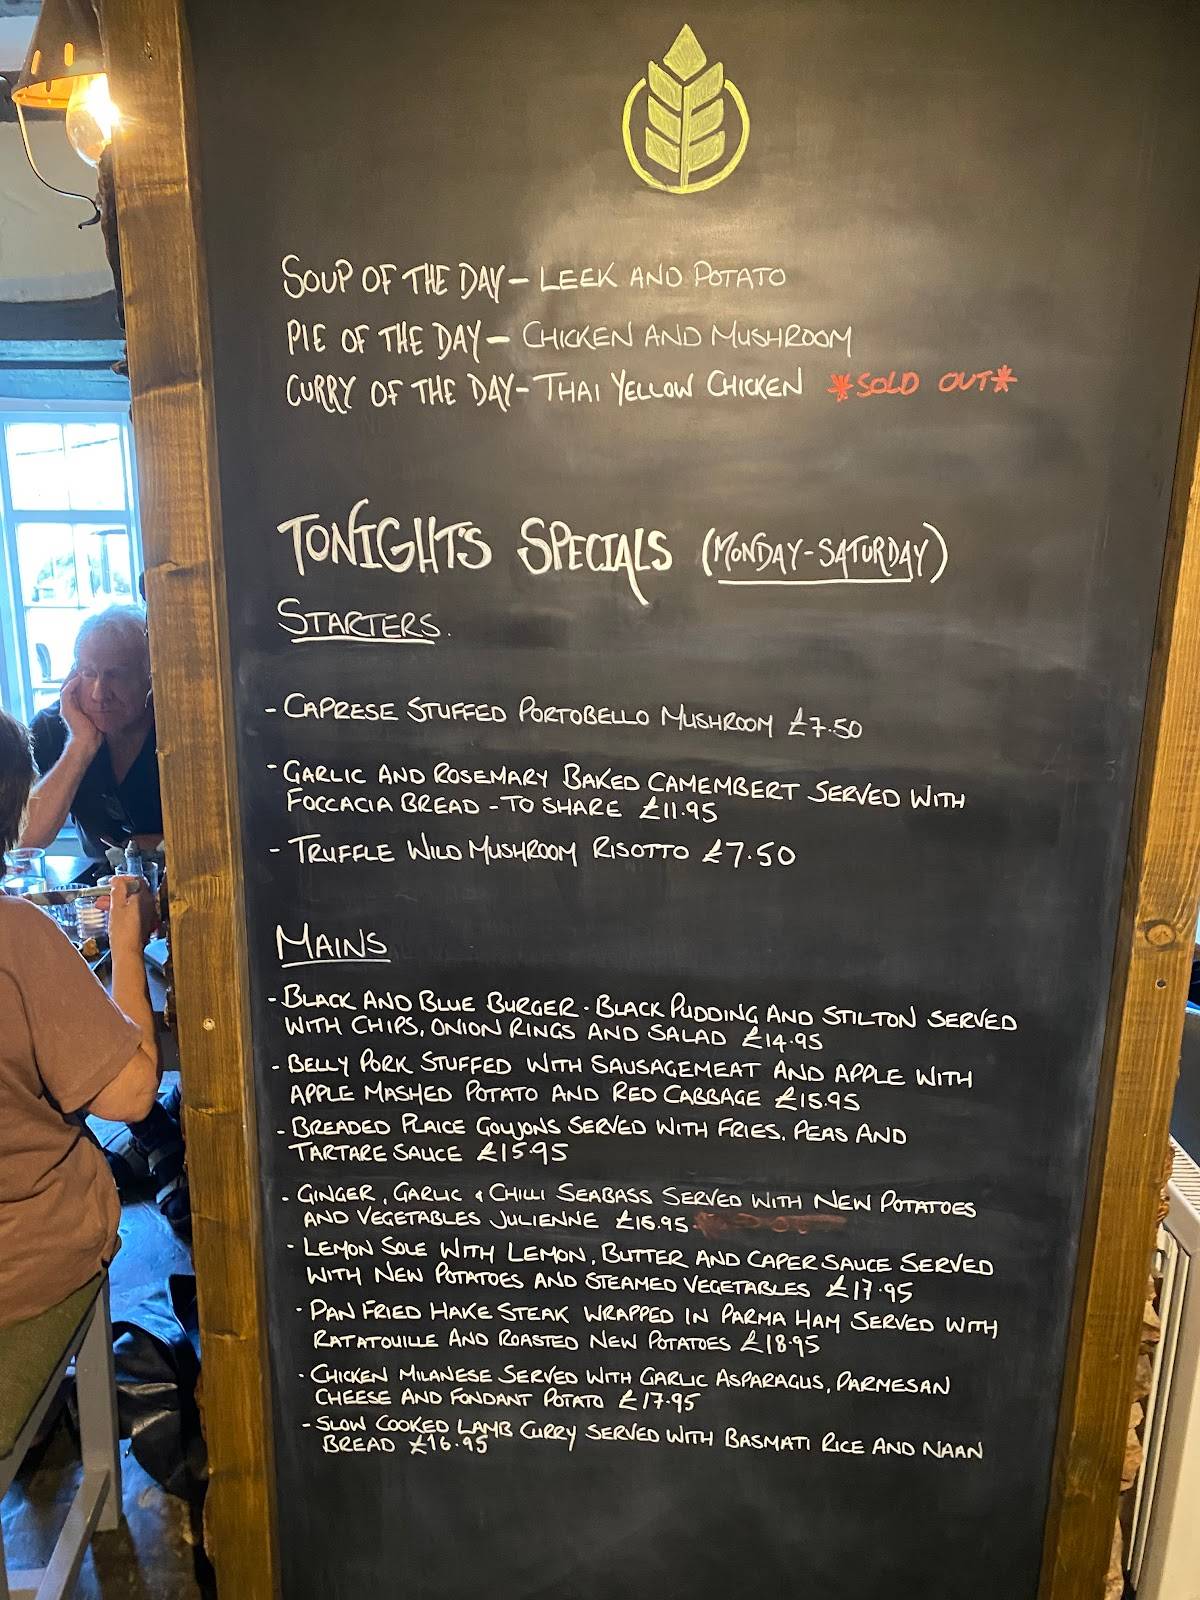 SOUP OF THE DAY - LEEK AND POTATO
PIE OF THE DAY - CHICKEN AND MUSHROOM
CURRY OF THE DAY - THAI YELLOW CHICKEN *SOLD OUT*
TONIGHT'S SPECIALS (MONDAY-SATURDAY)
STARTERS.
- CAPRESE STUFFED PORTOBELLO MUSHROOM £7.50
- GARLIC AND ROSEMARY BAKED CAMEMBERT SERVED WITH
FOCCACIA BREAD - TO SHARE £11.95
- TRUFFLE WILD MUSHROOM RISOTTO £7.50
MAINS
- BLACK AND BLUE BURGER - BLACK PUDDING AND STILTON SERVED
WITH CHIPS, ONION RINGS AND SALAD £14.95
- BELLY PORK STUFFED WITH SAUSAGEMEAT AND APPLE WITH
APPLE MASHED POTATO AND RED CABBAGE £15.95
- BREADED PLAICE GOUJONS SERVED WITH FRIES, PEAS AND
TARTARE SAUCE £15.95
- GINGER, GARLIC & CHILLI SEABASS SERVED WITH NEW POTATOES
AND VEGETABLES JULIENNE £16.95
- LEMON SOLE WITH LEMON, BUTTER AND CAPER SAUCE SERVED
WITH NEW POTATOES AND STEAMED VEGETABLES £17.95
- PAN FRIED HAKE STEAK WRAPPED IN PARMA HAM SERVED WITH
RATATOUILLE AND ROASTED NEW POTATOES £18.95
- CHICKEN MILANESE SERVED WITH GARLIC ASPARAGUS, PARMESAN
CHEESE AND FONDANT POTATO £17.95
- SLOW COOKED LAMB CURRY SERVED WITH BASMATI RICE AND NAAN
BREAD £16.95